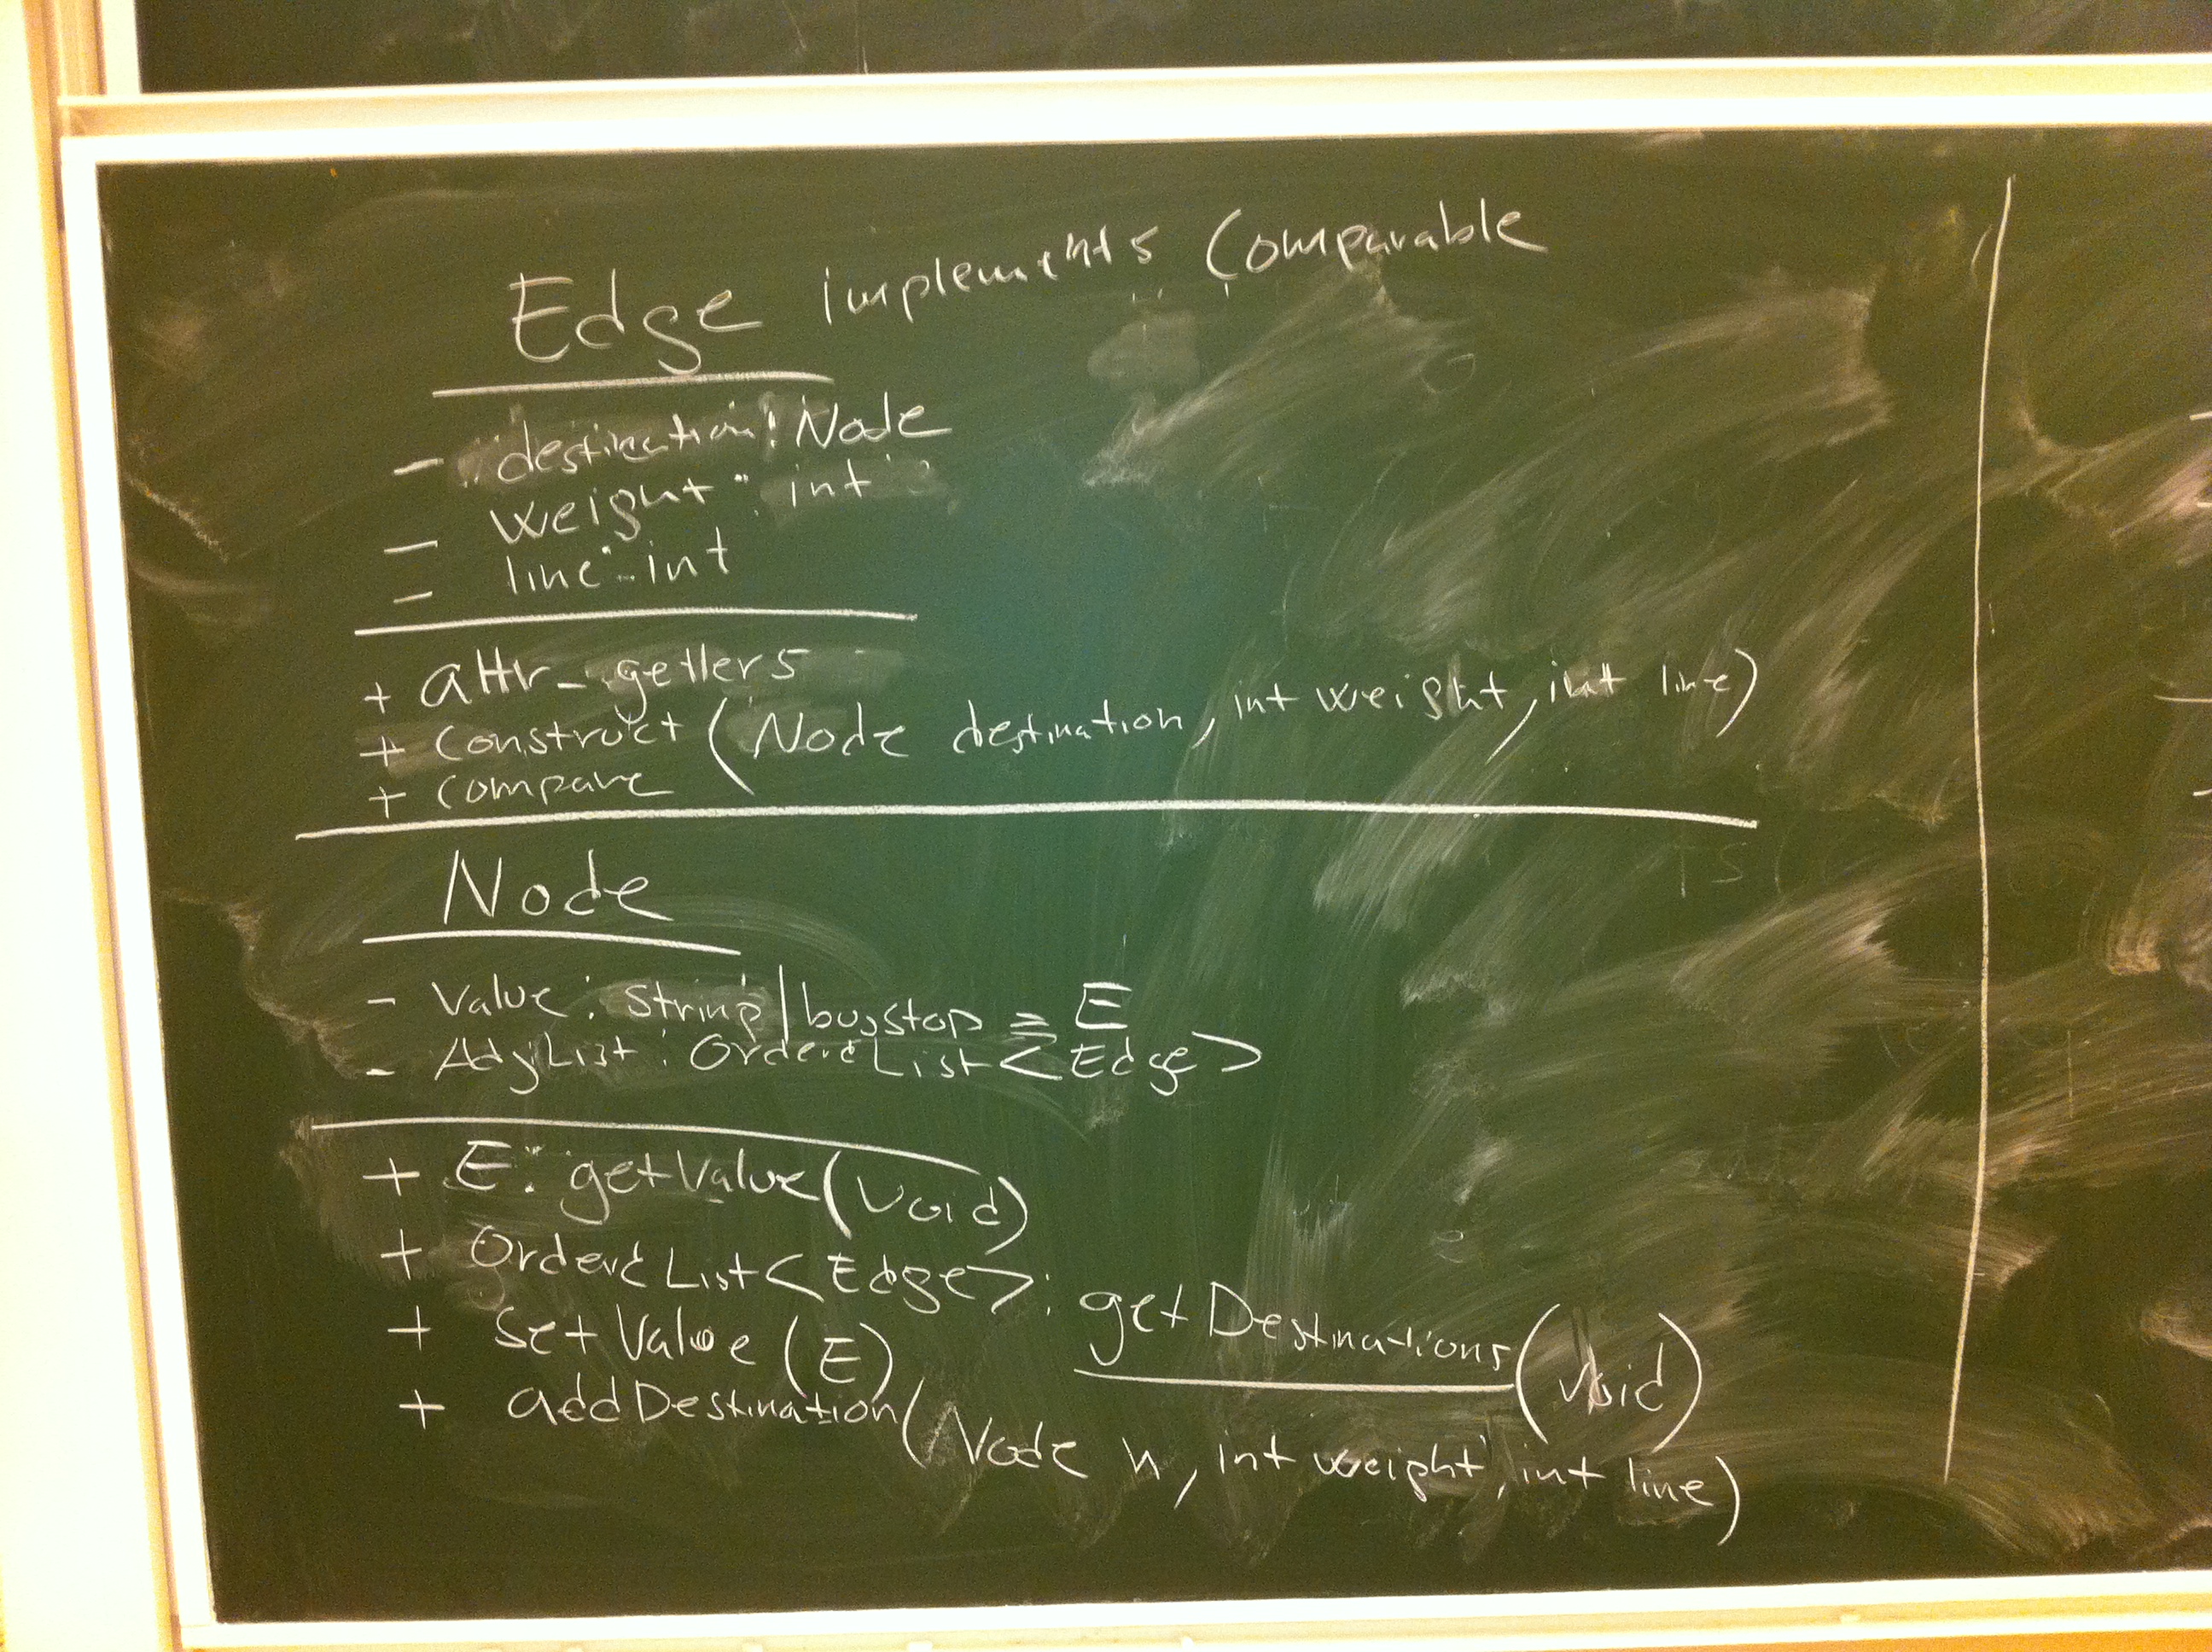 Edge implements Comparable
- destination: Node
- weight: int
- line: int
+ attr_getters
+ Construct (Node destination, int weight, int line)
+ compare
Node
- Value: String/busstop = E
- AdyList: OrderedList<Edge>
+ E: getValue(void)
+ OrderedList<Edge>: getDestinations(void)
+ SetValue(E)
+ addDestination(Node n, int weight, int line)